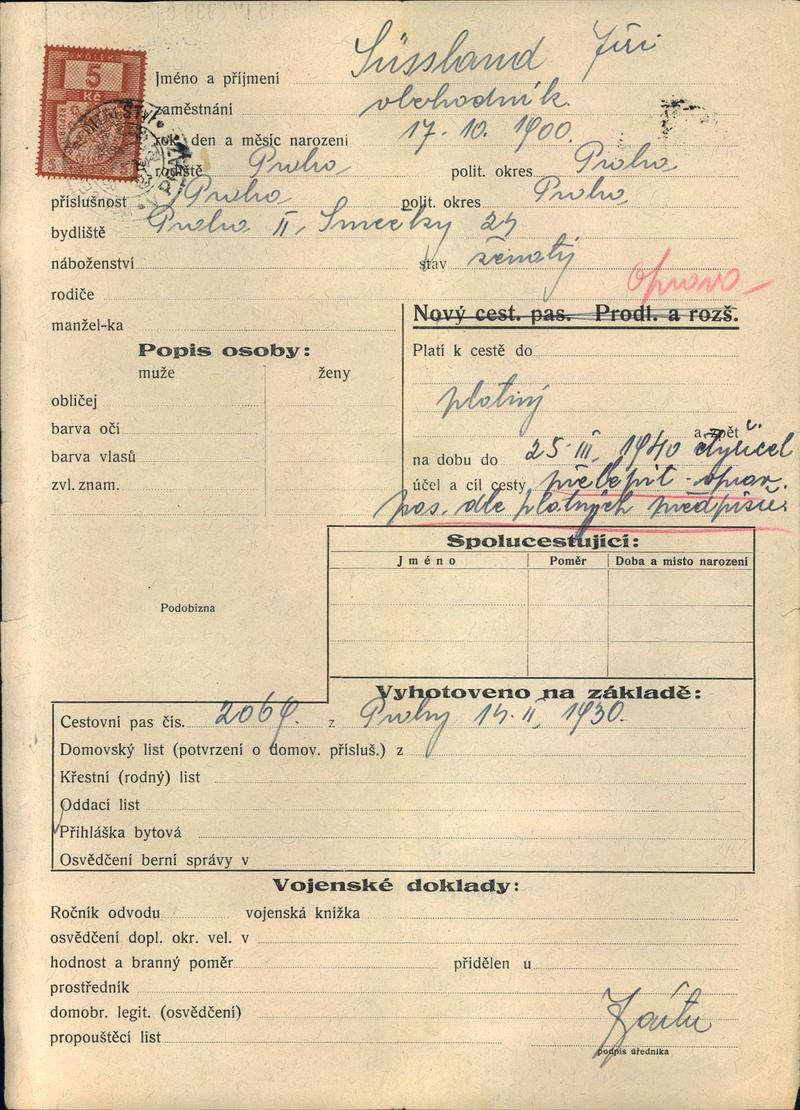 KOLEK
5
Kč
Jméno a příjmení Süssland Jiří
zaměstnání obchodník.
rok, den a měsíc narození 17. 10. 1900.
rodiště Praha polit. okres Praha
příslušnost Praha polit. okres Praha
bydliště Praha II, Smečky 24
náboženství stav ženatý
oprava
rodiče
Nový cest. pas. Prodl. a rozš.
manžel-ka
Popis osoby:
Platí k cestě do
muže ženy
platný
obličej
barva očí a zpět
barva vlasů na dobu do 25. III. 1940 čtyřicet
zvl. znam. účel a cíl cesty přelepit - oprav.
pas. dle platných předpisů.
Spolucestující:
Jméno Poměr Doba a misto narození
Podobizna
Vyhotoveno na základě:
Cestovní pas čís. 2069. z Prahy 14. II. 1930.
Domovský list (potvrzení o domov. přísluš.) z
Křestní (rodný) list
Oddací list
Přihláška bytová
Osvědčení berní správy v
Vojenské doklady:
Ročník odvodu vojenská knížka
osvědčení dopl. okr. vel. v
hodnost a branný poměr přidělen u
prostředník
domobr. legit. (osvědčení)
propouštěcí list
podpis úředníka